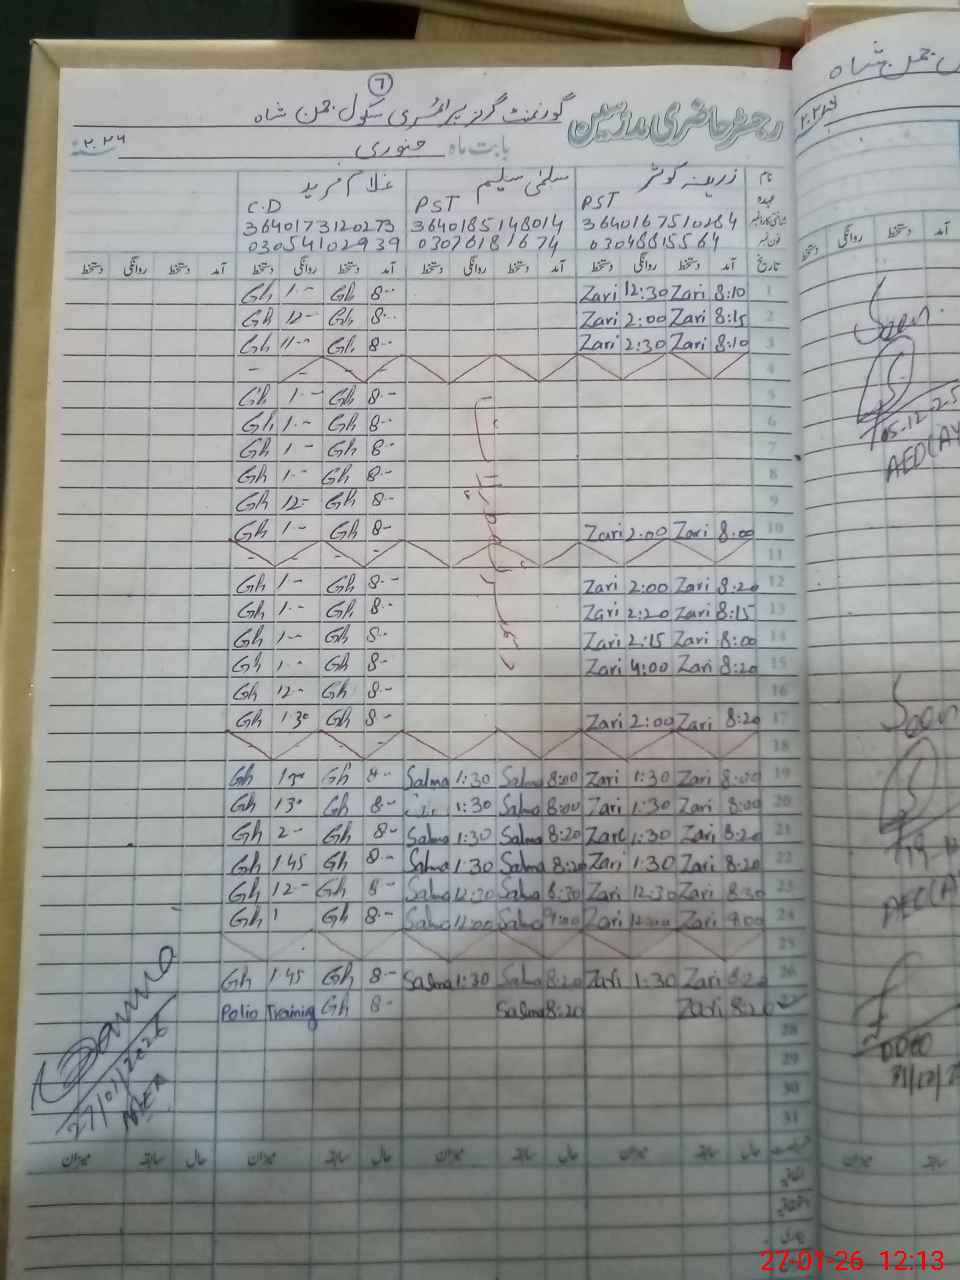 ٦
رجسٹر حاضری مدرسین گورنمنٹ گرلز پرائمری سکول جمن شاہ
بابت ماہ جنوری سنہ ٢٠٢٦
نام زرینہ کوثر سلمٰی سلیم غلام فرید
عہدہ PST PST C.D
شناختی کارڈ نمبر 3640167510284 3640185148014 3640173120273
فون نمبر 03048815564 03076181674 03054102939
تاریخ آمد دستخط روانگی دستخط آمد دستخط روانگی دستخط آمد دستخط روانگی دستخط آمد دستخط روانگی دستخط
Gh 1-- Gh 8-- Zari 12:30 Zari 8:10 1
Gh 12-- Gh 8-- Zari 2:00 Zari 8:15 2
Gh 11-- Gh 8-- Zari 2:30 Zari 8:10 3
- - - - 4
Gh 1-- Gh 8-- 5
Gh 1-- Gh 8-- 6
Gh 1-- Gh 8-- 7
Gh 1-- Gh 8-- 8
Gh 12-- Gh 8-- 9
Gh 1-- Gh 8-- Zari 2:00 Zari 8:00 10
- - - - 11
Gh 1-- Gh 8-- Zari 2:00 Zari 8:20 12
Gh 1-- Gh 8-- Zari 2:20 Zari 8:15 13
Gh 1-- Gh 8-- Zari 2:15 Zari 8:00 14
Gh 1-- Gh 8-- Zari 4:00 Zari 8:20 15
Gh 12-- Gh 8-- 16
Gh 1:30 Gh 8-- Zari 2:00 Zari 8:20 17
- - - 18
Gh 130 Gh 8-- Salma 1:30 Salma 8:00 Zari 1:30 Zari 8:00 19
Gh 130 Gh 8-- 1:30 Salma 8:00 Zari 1:30 Zari 8:00 20
Gh 2-- Gh 8-- Salma 1:30 Salma 8:20 Zari 1:30 Zari 8:20 21
Gh 145 Gh 8-- Salma 1:30 Salma 8:20 Zari 1:30 Zari 8:20 22
Gh 12-- Gh 8-- Salma 12:30 Salma 8:30 Zari 12:30 Zari 8:30 23
Gh 1 Gh 8-- Salma 12:00 Salma 9:00 Zari 12:00 Zari 9:00 24
25
Gh 145 Gh 8-- Salma 1:30 Salma 8:20 Zari 1:30 Zari 8:20 26
Polio Training Gh 8-- Salma 8:20 Zari 8:20 27
28
29
30
31
27/01/2026
MEA
حال سابقہ میزان حال سابقہ میزان حال سابقہ میزان حال سابقہ میزان
جمن شاہ
روانگی دستخط آمد
Seen
05-12-25
AEO(A)
Seen
19-12
AEO(A)
31/12/2
میزان سابقہ
27-01-26 12:13